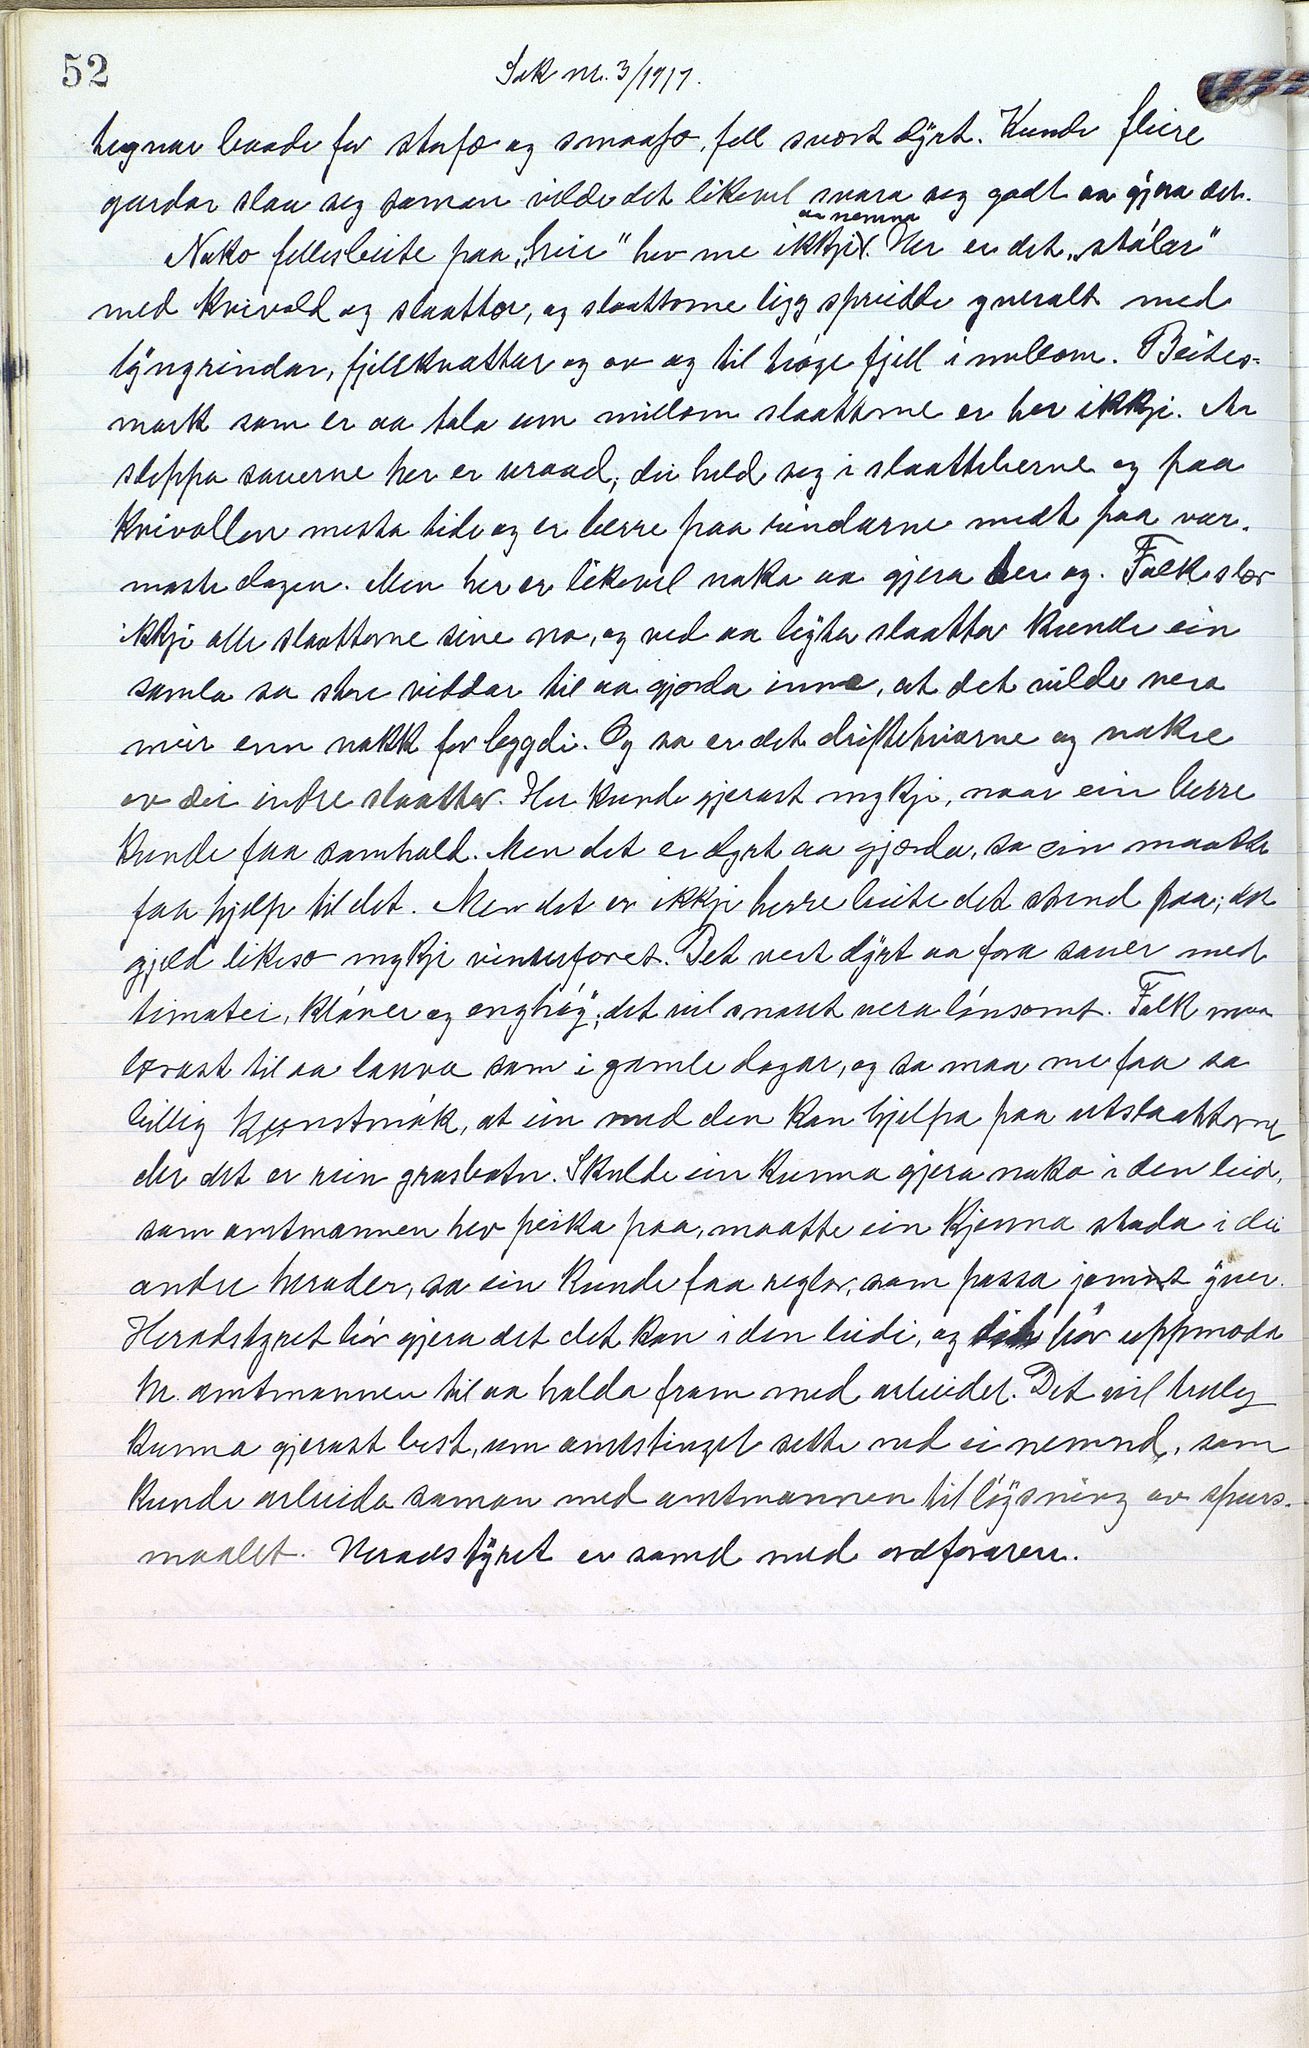 52
Sak nr. 3/1917.
hegnar baade for storfæ og smaafæ, fell svært dyrt. Kunde fleire
gardar slaa seg saman vilde det likevel svara seg godt aa gjera det.
aa nemna
Noko fellesbeite paa „heie" hev me ikkje. Her er det „stølar"
med kvivold og slaattor, og slaattorne ligg spreidde yveralt med
lyngrindar, fjellknattar og av og til høge fjell i millom. Beites-
mark som er aa tala um millom slaattorne er her ikkje. Aa
sleppa sauerne her er uraad; dei held seg i slaatteberne og paa
kvivollen mesta tide og er berre paa rindarne midt paa var-
maste dagen. Men her er likevel noko aa gjera her og. Folk slær
ikkje alle slaattorne sine no, og ved aa bytta slaattor kunde ein
samla so store viddar til aa gjerda inne, at det vilde vera
meir enn nokk for bygdi. Og so er det driftehiarne og nokre
av dei indre slaattor. Her kunde gjerast mykje, naar ein berre
kunde faa samhald. Men det er dyrt aa gjerda, so ein maatte
faa hjelp til det. Men det er ikkje berre beite det stend paa; det
gjeld likeso mykje vinterforet. Det vert dyrt aa fora sauer med
timotei, kløver og enghøy; det vil snart vera lønsomt. Folk maa
lærast til aa lauva som i gamle dagar, og so maa me faa so
billig kunstmøk, at ein med den kan hjelpa paa utslaattorne
der det er rein grasbotn. Skulde ein kunna gjera noko i den leid,
som amtmannen hev peika paa, maatte ein kjenna stoda i dei
andre herader, so ein kunde faa reglar, som passa jamnt yver.
Heradstyret bør gjera det det kan i den leidi, og bør uppmoda
hr. amtmannen til aa halda fram med arbeidet. Det vil truleg
kunna gjerast best, um amtstinget sette ned ei nemnd, som
kunde arbeida saman med amtmannen til løysning av spurs-
maalet. Heradstyret er samd med ordføraren.